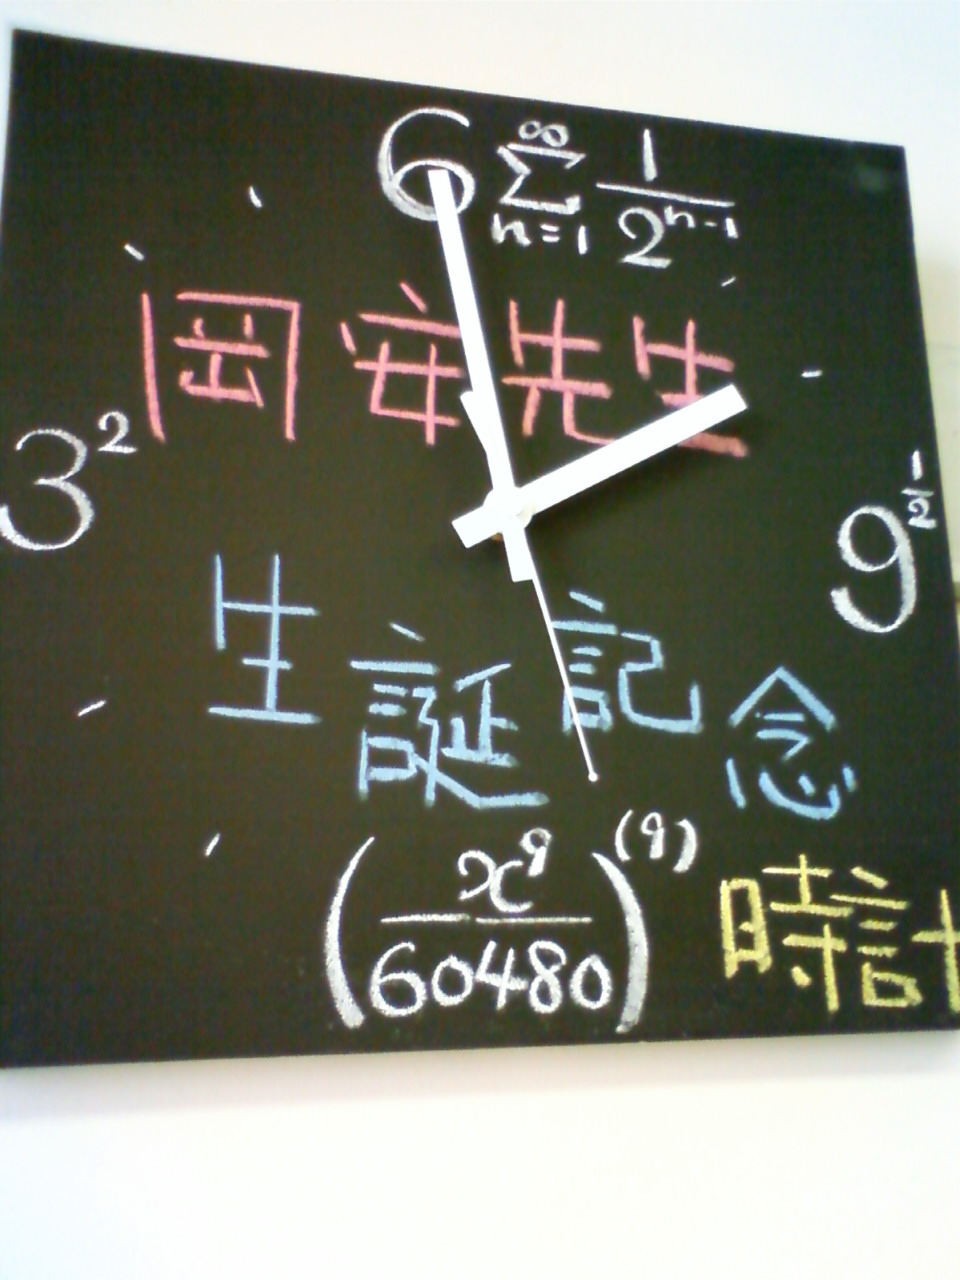 6 ∑_{n=1}^{∞} 1/2^{n-1}
岡安先生
3^2
9^{1/2}
生誕記念
(x^9/60480)^{(9)}
時計